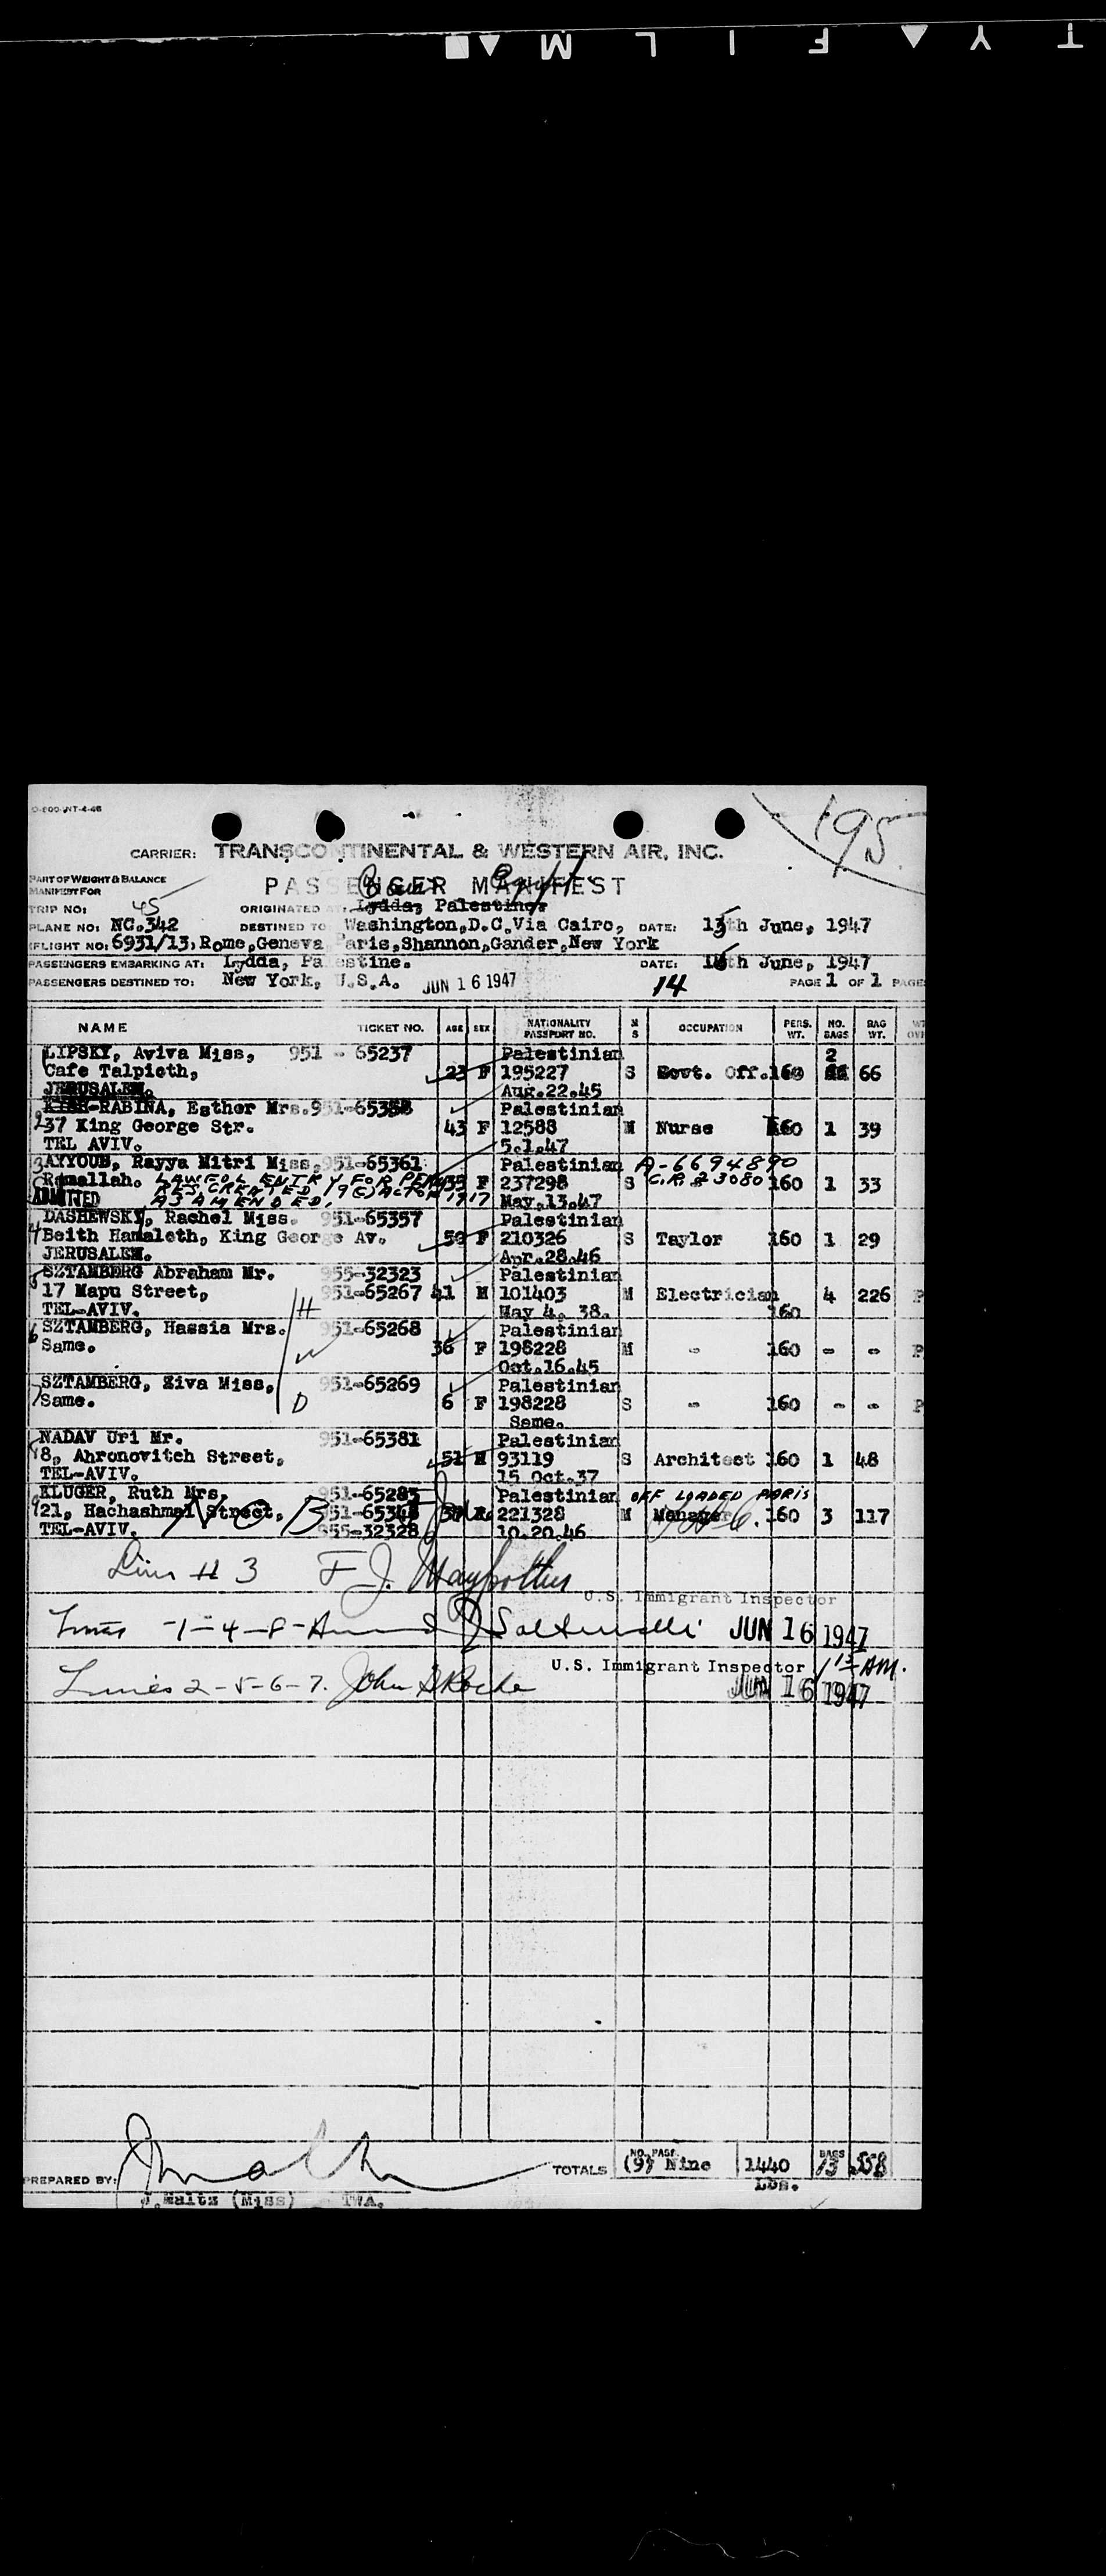 T Y ▲ F I L M ▲ ■
O-200-INT-4-46
195
CARRIER: TRANSCONTINENTAL & WESTERN AIR, INC.
PART OF WEIGHT & BALANCE
MANIFEST FOR
PASSENGER MANIFEST
Cairo Egypt
TRIP NO: 45 ORIGINATED AT. Lydda, Palestine.
PLANE NO: NC.342 DESTINED TO Washington,D.C.Via Cairo, DATE: 15th June, 1947
FLIGHT NO: 6931/13, Rome,Geneva Paris,Shannon,Gander,New York
PASSENGERS EMBARKING AT: Lydda, Palestine. DATE: 14th June, 1947
PASSENGERS DESTINED TO: New York, U.S.A. JUN 16 1947 14 PAGE 1 OF 1 PAGE
NAME TICKET NO. AGE SEX NATIONALITY PASSPORT NO. M S OCCUPATION PERS. WT. NO. BAGS BAG WT.
LIPSKY, Aviva Miss, 951 - 65237 Palestinian 2
Cafe Talpieth, 23 F 195227 S Govt. Off. 160 66
JERUSALEM. Aug.22.45
2 KISH-RABINA, Esther Mrs. 951-65358 Palestinian
37 King George Str. 43 F 12588 M Nurse 160 1 39
TEL AVIV. 5.1.47
3 AYYOUB, Rayya Mitri Miss, 951-65361 Palestinian A-6694890
Ramallah. LAWFUL ENTRY FOR PERM 35 F 237298 S C.R.# 23080 160 1 33
ADMITTED RES CREATED 19(C) ACT OF 1917
AS AMENDED. May.13.47
DASHEWSKY, Rachel Miss. 951-65357 Palestinian
4 Beith Hamaleth, King George Av. 50 F 210326 S Taylor 160 1 29
JERUSALEM. Apr.28.46
5 SZTAMBERG Abraham Mr. 955-32323 Palestinian
17 Mapu Street, 951-65267 41 M 101403 M Electrician 160 4 226 P
TEL-AVIV. H May 4. 38.
6 SZTAMBERG, Hassia Mrs. 951-65268 Palestinian
Same. W 36 F 198228 M - 160 - - P
Oct.16.45
SZTAMBERG, Ziva Miss, 951-65269 Palestinian
7 Same. D 6 F 198228 S - 160 - - P
Same.
NADAV Uri Mr. 951-65381 Palestinian
8, Ahronovitch Street, 51 M 93119 S Architect 160 1 48
TEL-AVIV. 15 Oct.37
9 KLUGER, Ruth Mrs. 951-65285 Palestinian OFF LOADED PARIS
21, Hachashmal Street, NOB 951-65348 221328 M Manager 160 3 117
TEL-AVIV. 955-32328 10.20.46
Line # 3 F J.
U.S. Immigrant Inspector
Lines -1-4-8- JUN 16 1947
U.S. Immigrant Inspector 1 15 AM.
Lines 2-5-6-7. John JUN 16 1947
PREPARED BY: TOTALS NO. PASS. (9) Nine 1440 Lbs. BAGS 13 558
J. Maltz (Miss) TWA.